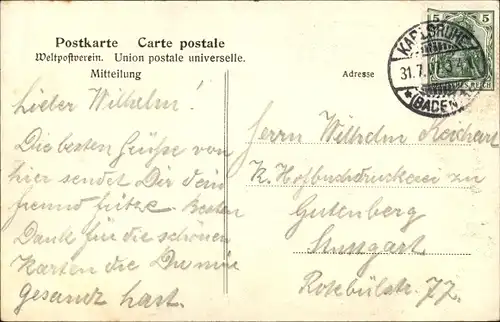 Postkarte Carte postale
Weltpostverein. Union postale universelle.
Mitteilung
Adresse
5 5
KARLSRUHE
31.7.
(BADEN)
REICH
Lieber Wilhelm!
Die besten Grüße von
hier sendet Dir dein
freund
Besten
Dank für die schönen
Karten die Du mir
gesandt hast.
Herrn Wilhelm
K. Hofbuchdruckerei zu
Gutenberg
Stuttgart
Rotebülstr. 77.